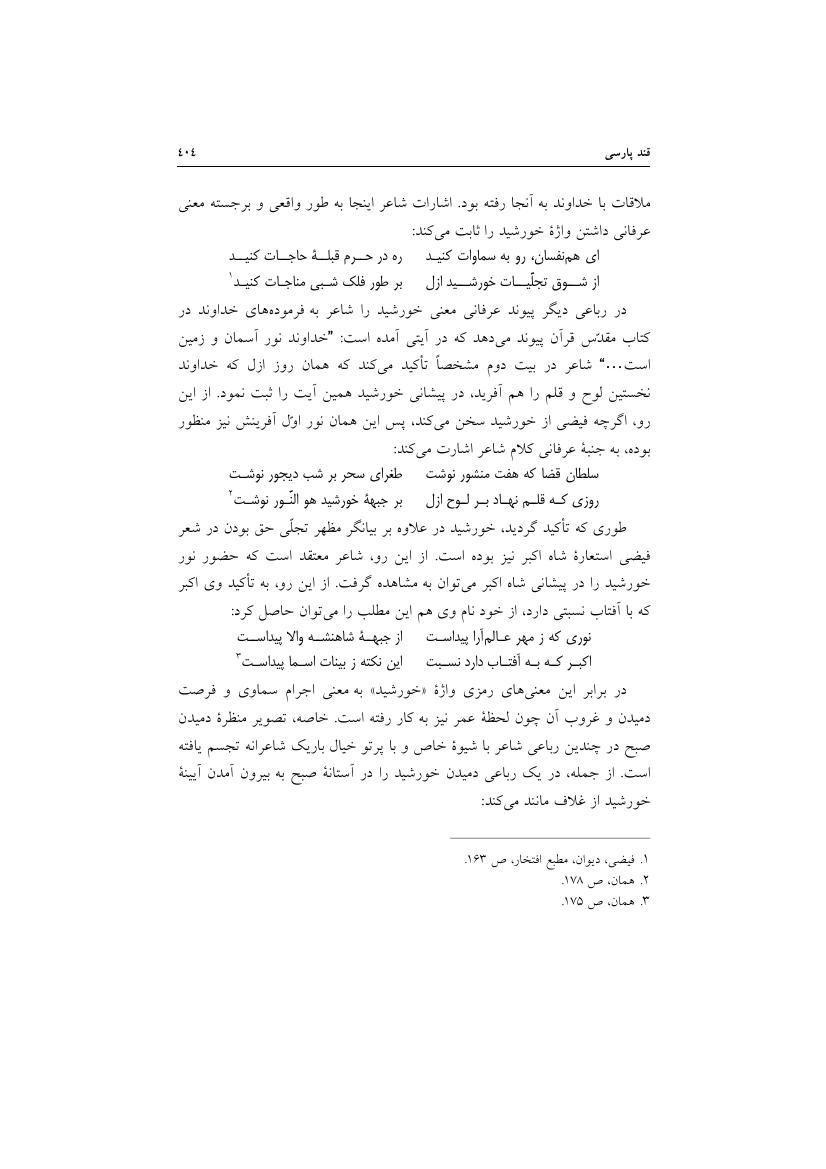 قند پارسی ٤٠٤
ملاقات با خداوند به آنجا رفته بود. اشارات شاعر اینجا به طور واقعی و برجسته معنی
عرفانی داشتن واژهٔ خورشید را ثابت می‌کند:
ای هم‌نفسان، رو به سماوات کنیـد ره در حــرم قبلــهٔ حاجــات کنیــد
از شــوق تجلّیــات خورشــید ازل بر طور فلک شـبی مناجـات کنیـد۱
در رباعی دیگر پیوند عرفانی معنی خورشید را شاعر به فرموده‌های خداوند در
کتاب مقدّس قرآن پیوند می‌دهد که در آیتی آمده است: ”خداوند نور آسمان و زمین
است...“ شاعر در بیت دوم مشخصاً تأکید می‌کند که همان روز ازل که خداوند
نخستین لوح و قلم را هم آفرید، در پیشانی خورشید همین آیت را ثبت نمود. از این
رو، اگرچه فیضی از خورشید سخن می‌کند، پس این همان نور اوّل آفرینش نیز منظور
بوده، به جنبهٔ عرفانی کلام شاعر اشارت می‌کند:
سلطان قضا که هفت منشور نوشت طغرای سحر بر شب دیجور نوشـت
روزی کـه قلـم نهـاد بـر لـوح ازل بر جبههٔ خورشید هو النّـور نوشـت۲
طوری که تأکید گردید، خورشید در علاوه بر بیانگر مظهر تجلّی حق بودن در شعر
فیضی استعارهٔ شاه اکبر نیز بوده است. از این رو، شاعر معتقد است که حضور نور
خورشید را در پیشانی شاه اکبر می‌توان به مشاهده گرفت. از این رو، به تأکید وی اکبر
که با آفتاب نسبتی دارد، از خود نام وی هم این مطلب را می‌توان حاصل کرد:
نوری که ز مهر عـالم‌آرا پیداسـت از جبهـهٔ شاهنشـه والا پیداسـت
اکبـر کـه بـه آفتـاب دارد نسـبت این نکته ز بینات اسـما پیداسـت۳
در برابر این معنی‌های رمزی واژهٔ «خورشید» به معنی اجرام سماوی و فرصت
دمیدن و غروب آن چون لحظهٔ عمر نیز به کار رفته است. خاصه، تصویر منظرهٔ دمیدن
صبح در چندین رباعی شاعر با شیوهٔ خاص و با پرتو خیال باریک شاعرانه تجسم یافته
است. از جمله، در یک رباعی دمیدن خورشید را در آستانهٔ صبح به بیرون آمدن آیینهٔ
خورشید از غلاف مانند می‌کند:
۱. فیضی، دیوان، مطبع افتخار، ص ۱۶۳.
۲. همان، ص ۱۷۸.
۳. همان، ص ۱۷۵.